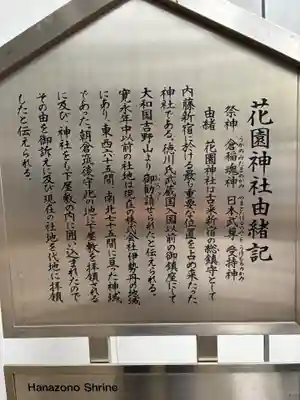 花園神社由緒記
うかのみたまのかみ やまとたけるのみこと うけもちのかみ
祭神 倉稲魂神 日本武尊 受持神
由緒 花園神社は古来新宿の総鎮守として
内藤新宿に於ける最も重要な位置を占め来たった
神社である。徳川氏武蔵国入国以前の御鎮座にして
大和国吉野山より御勧請せられたと伝えられる。
寛永年中以前の社地は現在の株式会社伊勢丹の地域
にあり、東西六十五間、南北七十五間に亘った神域
であった。朝倉筑後守此の地に下屋敷を拝領される
に及び、神社をも下屋敷の内に囲い込まれたので
その由を御訴えに及び現在の社地を代地に拝領
したと伝えられる。
Hanazono Shrine